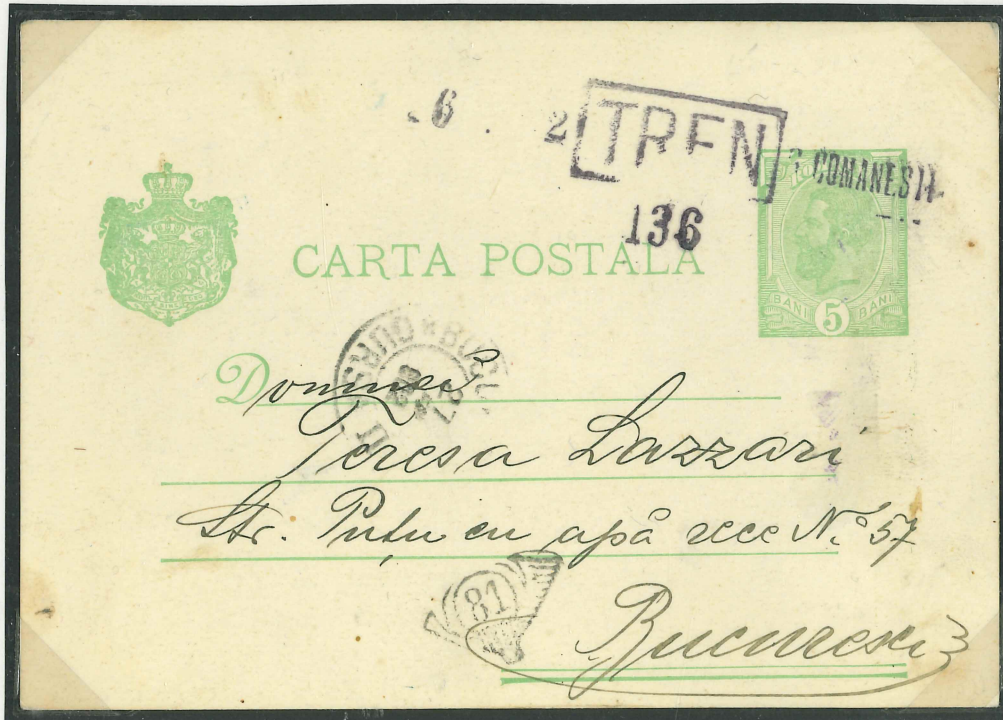 6
2 TREN
COMANESTI
136
CARTA POSTALA
BANI 5 BANI
Domnei
Teresa Lazzari
Str. Puțu cu apă rece No 57
81
Bucuresci